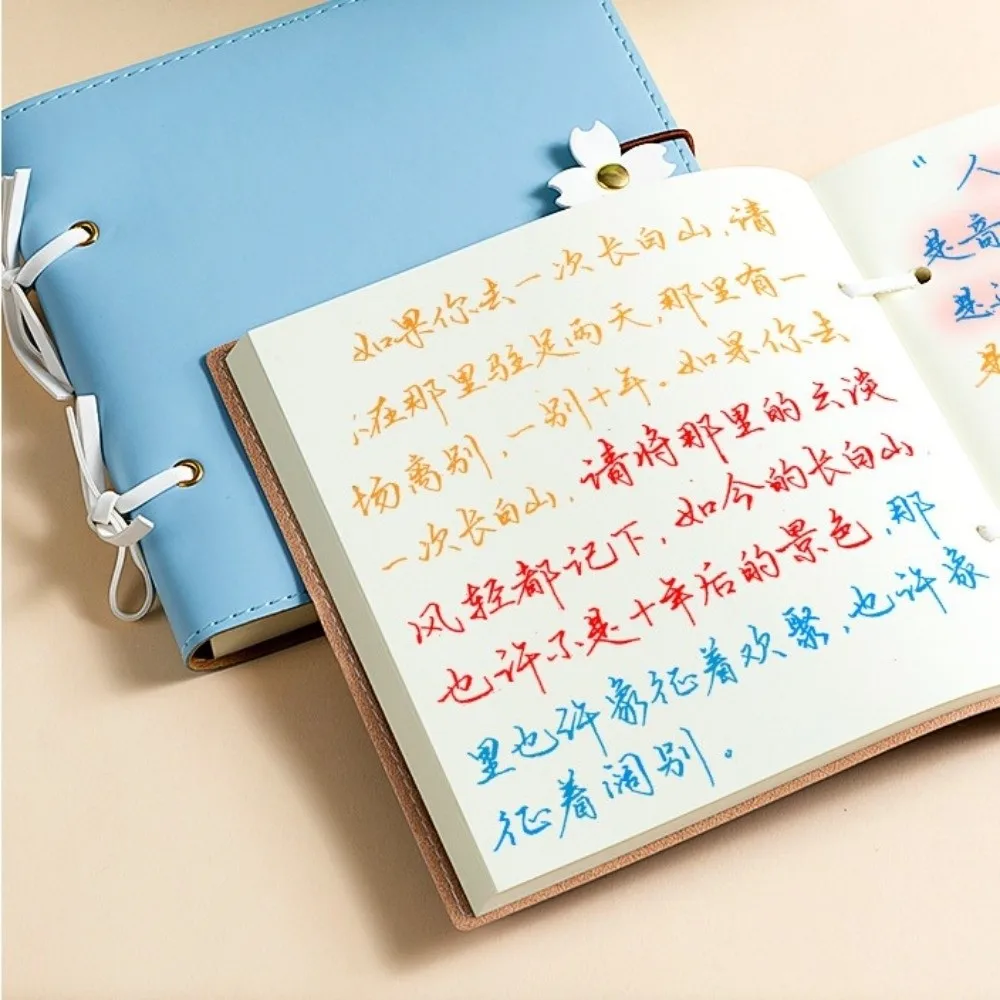 如果你去一次长白山，请
在那里驻足两天，那里有一
场离别，一别十年。如果你去
一次长白山，请将那里的云淡
风轻都记下，如今的长白山，
也许不是十年后的景色，那
里也许象征着欢聚，也许象
征着阔别。
“人
是音
是
是